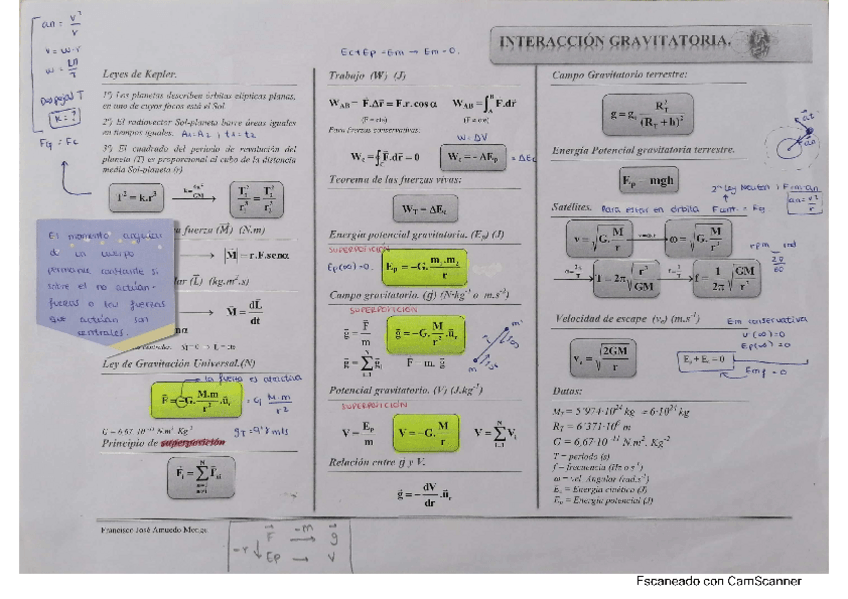 INTERACCIÓN GRAVITATORIA.
an = v²/r
v = w·r
w = 2π/T
Despejal T
K = ?
Fg = Fc
Leyes de Kepler.
1º) Los planetas describen órbitas elípticas planas,
en uno de cuyos focos está el Sol
2º) El radiovector Sol-planeta barre áreas iguales
en tiempos iguales. A₁=A₂ ; t₁=t₂
3º) El cuadrado del periodo de revolución del
planeta (T) es proporcional al cubo de la distancia
media Sol-planeta (r)
T² = k.r³
k=4π²/GM
T₁²/r₁³ = T₂²/r₂³
a fuerza (M⃗) (N.m)
|M⃗| = r.F.senα
lar (L⃗) (kg.m².s)
M⃗ = dL⃗/dt
El momento angular
de un cuerpo
permanece constante si
sobre él no actúan
fuerzas o las fuerzas
que actúan son
centrales.
Ley de Gravitación Universal.(N)
la fuerza es atractiva
F⃗ = -G. M.m/r² .u⃗ᵣ = G M·m/r²
G = 6,67·10⁻¹¹ N.m².Kg⁻²
gT = 9'8 m/s
Principio de superposición
F⃗ᵢ = Σ F⃗
Ec+Ep = Em → Em = 0.
Trabajo (W) (J)
W_AB = F⃗.Δr⃗ = F.r.cosα W_AB = ∫_A^B F⃗.dr⃗
(F = cte) (F ≠ cte)
Para fuerzas conservativas.
W = ΔV
W_c = ∮_C F⃗.dr⃗ = 0 W_c = -ΔEₚ = ΔEc
Teorema de las fuerzas vivas:
W_T = ΔE_c
Energía potencial gravitatoria. (Eₚ) (J)
SUPERPOSICIÓN
Ep(∞) = 0.
Eₚ = -G. m₁.m₂/r
Campo gravitatorio. (g⃗) (N·kg⁻¹ o m.s⁻²)
SUPERPOSICIÓN
g⃗ = F⃗/m g⃗ = -G. M/r² .u⃗ᵣ
g⃗ = Σ g⃗ᵢ F⃗ = m. g⃗
Potencial gravitatorio. (V) (J.kg⁻¹)
SUPERPOSICIÓN
V = Eₚ/m V = -G. M/r V = Σ Vᵢ
Relación entre g y V.
g⃗ = - dV/dr .u⃗ᵣ
Campo Gravitatorio terrestre:
g = g₀ R_T²/(R_T + h)²
Energía Potencial gravitatoria terrestre.
Eₚ = mgh
2ª Ley Newton: F=m·an
an = v²/r
Satélites. Para estar en órbita Fcent. = Fg
v = √(G. M/r) ω = √(G. M/r³)
rpm rad
2π/60
T = 2π √(r³/GM) f = 1/2π √(GM/r³)
Velocidad de escape (vₑ) (m.s⁻¹)
Em conservativa
v(∞) = 0
Ep(∞) = 0
vₑ = √(2GM/r)
E_c + Eₚ = 0
Emf = 0
Datos:
M_T = 5'974·10²⁴ kg ≈ 6·10²⁴ kg
R_T = 6'371·10⁶ m
G = 6,67·10⁻¹¹ N.m². Kg⁻²
T = periodo (s)
f = frecuencia (Hz o s⁻¹)
ω = vel. Angular (rad.s⁻¹)
E_c = Energía cinética (J)
Eₚ = Energía potencial (J)
Francisco José Amuedo
F⃗ -m→ g⃗
-r↓
Ep → V
Escaneado con CamScanner